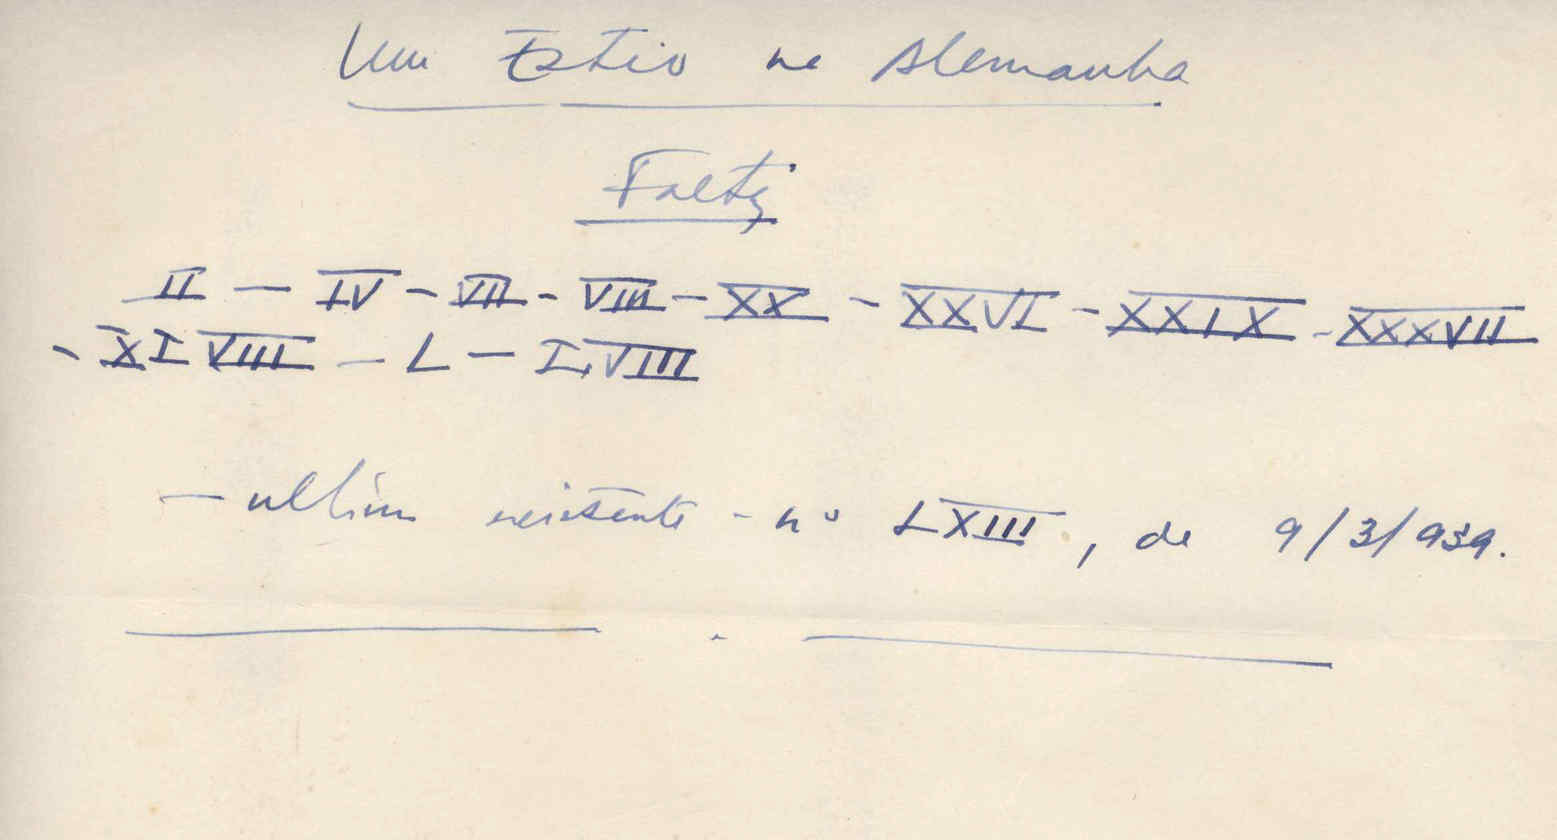 Um Estio na Alemanha
Faltam
II — IV - VII - VIII - XX - XXVI - XXIX - XXXVII
- XLVIII - L - LVIII
- ultimo existente - nº LXIII, de 9/3/939.